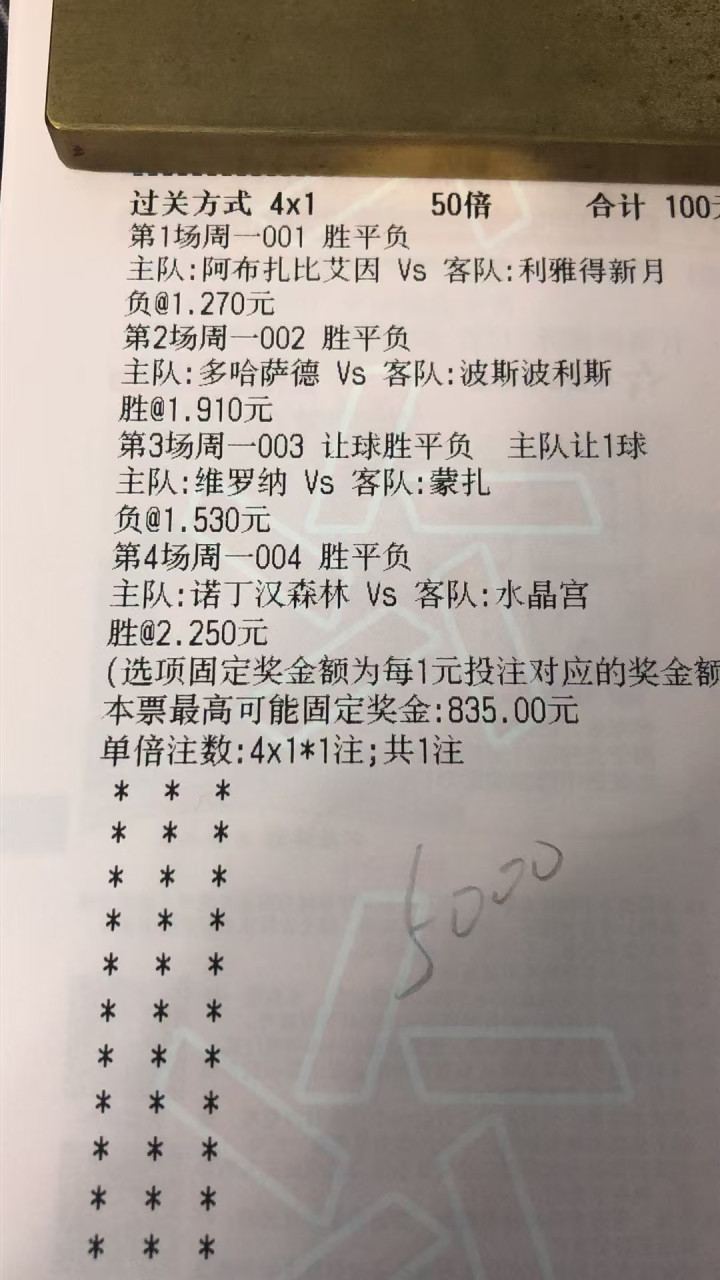 过关方式 4x1 50倍 合计 100元
第1场周一001 胜平负
主队:阿布扎比艾因 Vs 客队:利雅得新月
负@1.270元
第2场周一002 胜平负
主队:多哈萨德 Vs 客队:波斯波利斯
胜@1.910元
第3场周一003 让球胜平负 主队让1球
主队:维罗纳 Vs 客队:蒙扎
负@1.530元
第4场周一004 胜平负
主队:诺丁汉森林 Vs 客队:水晶宫
胜@2.250元
(选项固定奖金额为每1元投注对应的奖金额
本票最高可能固定奖金:835.00元
单倍注数:4x1*1注;共1注
* * *
* * *
* * *
* * *
* * *
* * *
* * *
* * *
* * *
* * *
* * *
5000